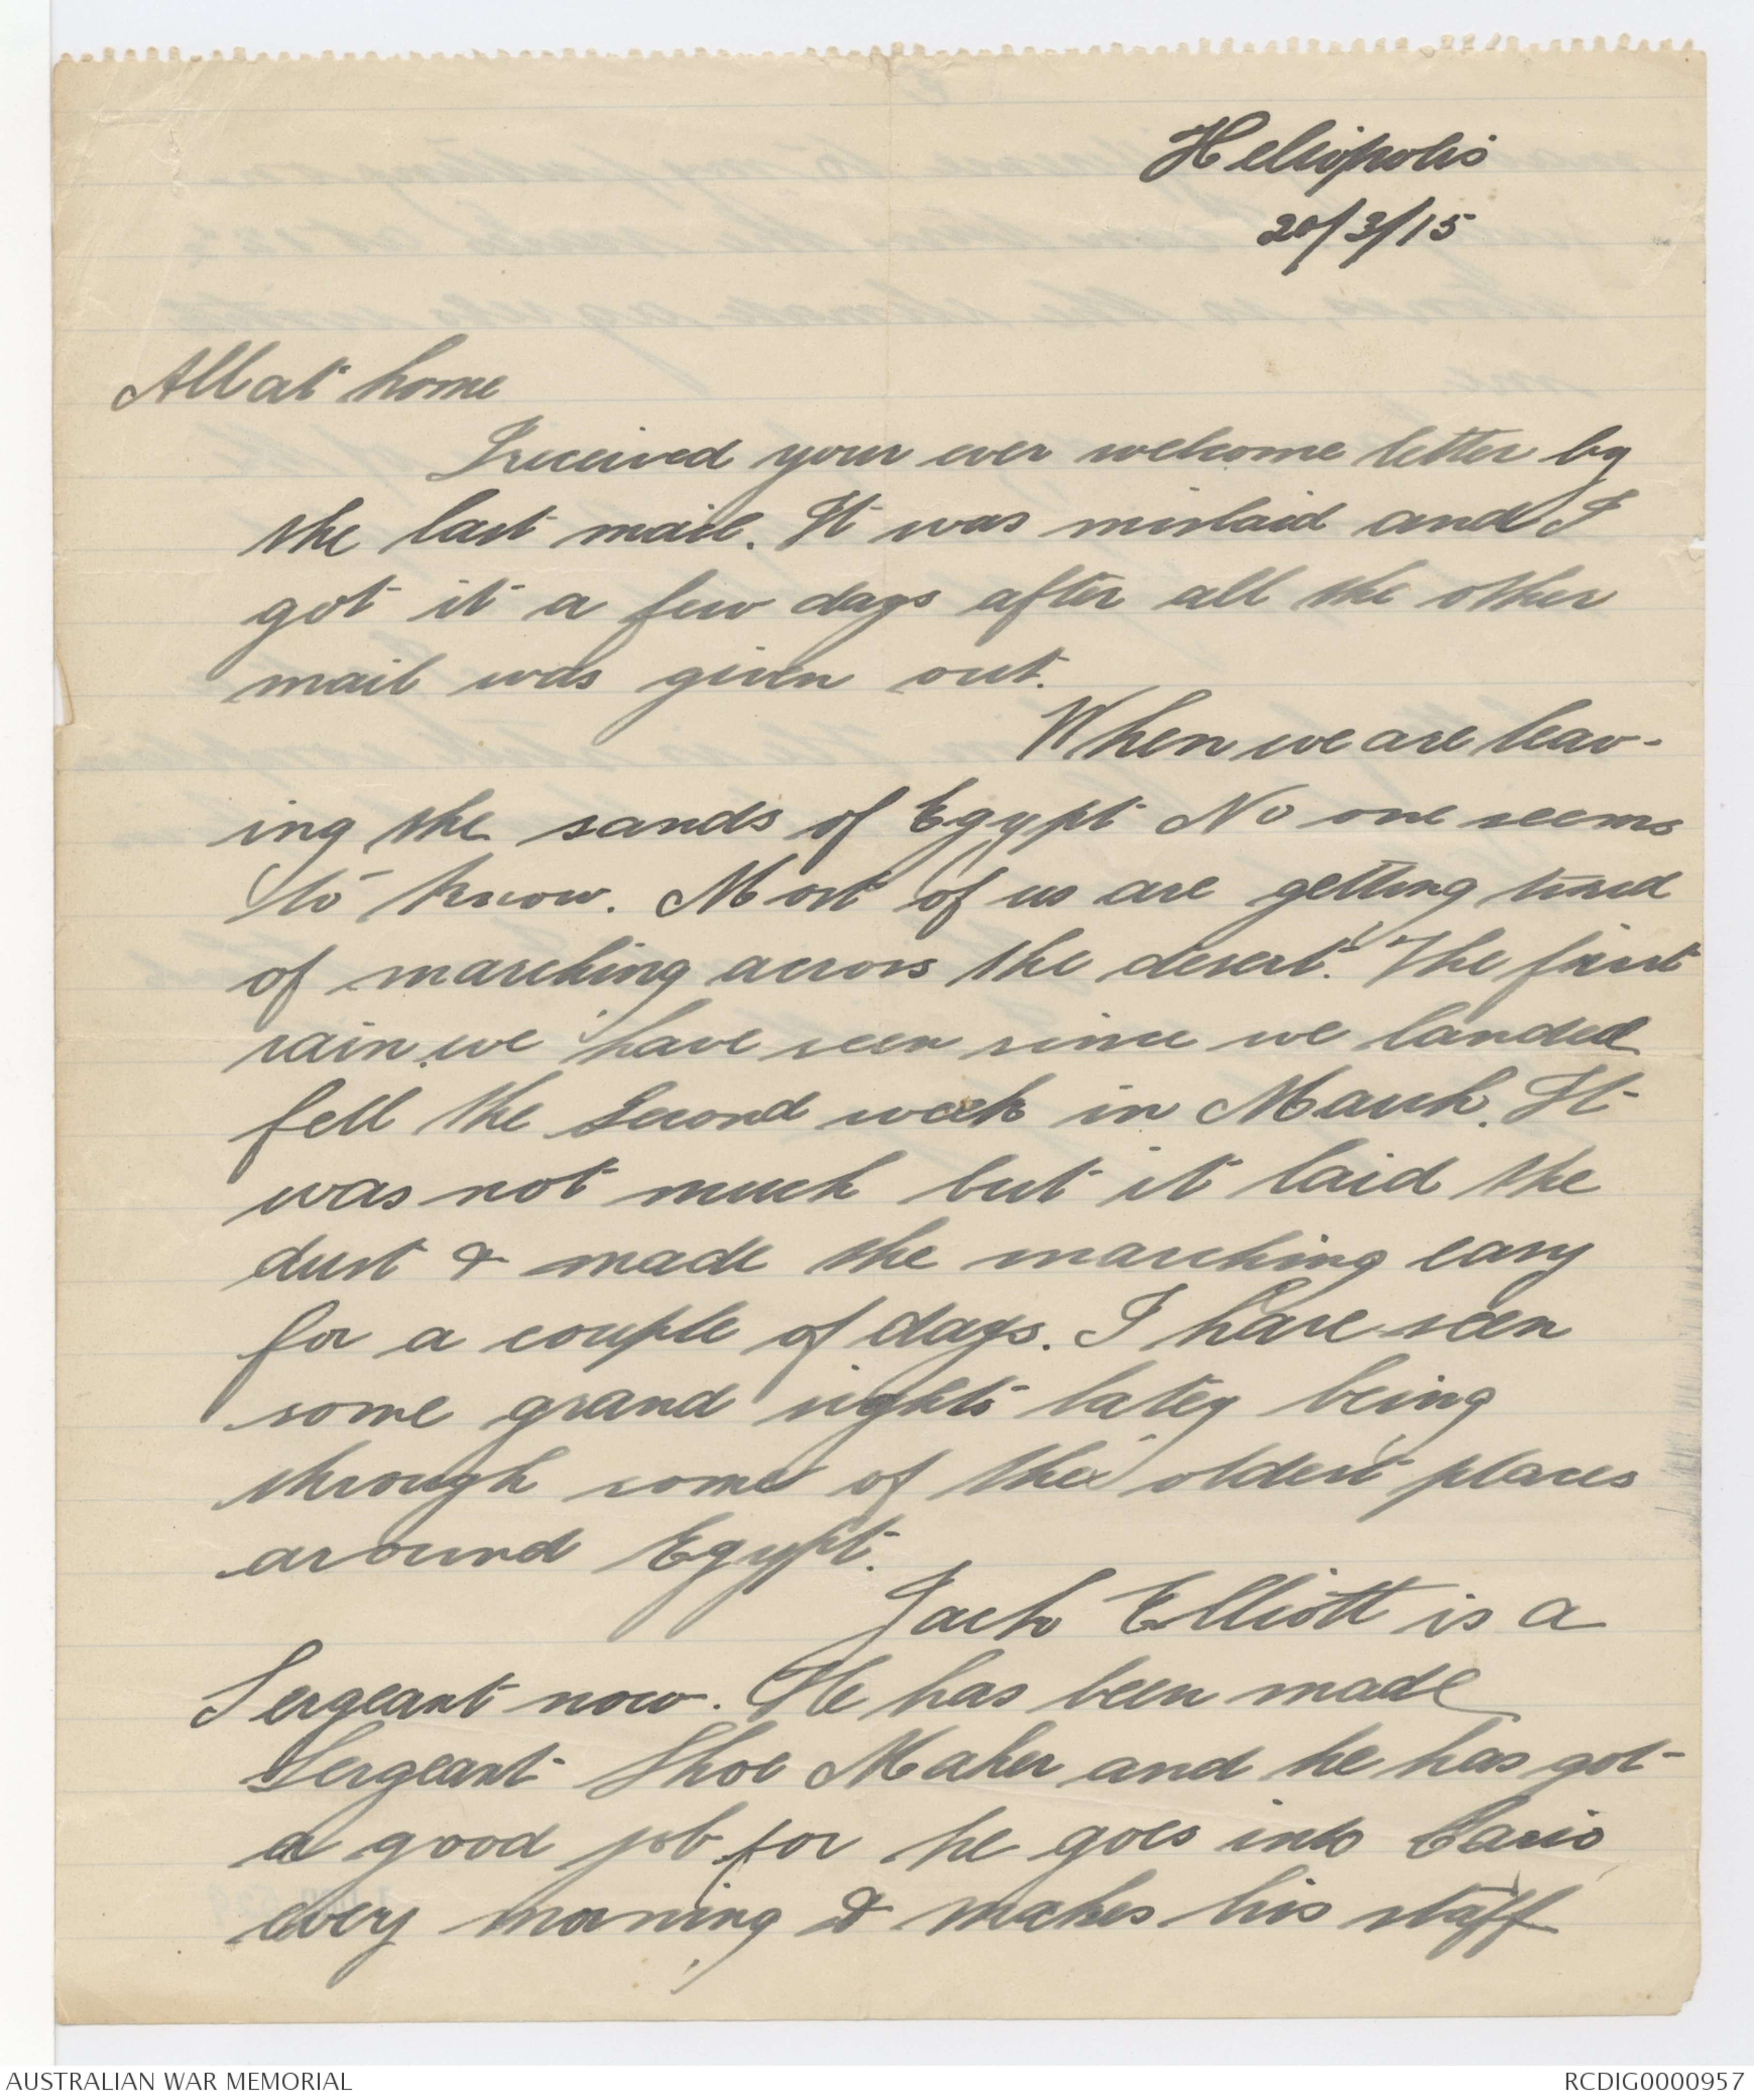 Heliopolis
20/3/15
All at home
I received your ever welcome letter by
the last mail. It was mislaid and I
got it a few days after all the other
mail was given out.
When we are leav-
ing the sands of Egypt No one seems
to know. Most of us are getting tired
of marching across the desert. The first
rain we have seen since we landed
fell the second week in March. It
was not much but it laid the
dust & made the marching easy
for a couple of days. I have seen
some grand sights latey being
through some of the oldest places
around Egypt.
Jack Elliott is a
Sergeant now. He has been made
Sergeant Shoe Maker and he has got
a good job for he goes into Cario
every morning & makes his staff
AUSTRALIAN WAR MEMORIAL
RCDIG0000957